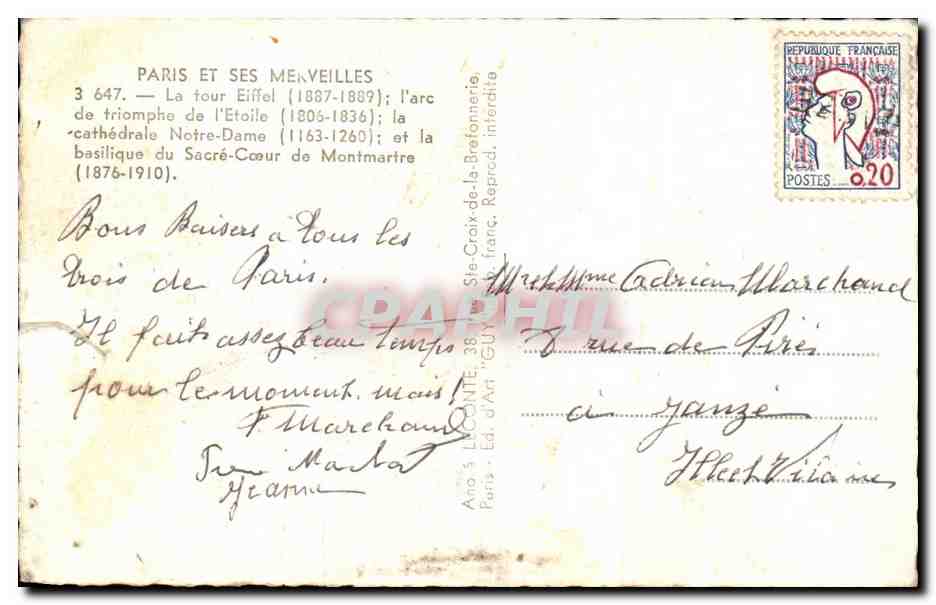 PARIS ET SES MERVEILLES
3 647. — La tour Eiffel (1887-1889); l'arc
de triomphe de l'Etoile (1806-1836); la
cathédrale Notre-Dame (1163-1260); et la
basilique du Sacré-Cœur de Montmartre
(1876-1910).
Bons Baisers à tous les
trois de Paris.
Il fait assez beau temps
pour le moment. mais!
F Marchand
Jeanne
Ste-Croix-de-la-Bretonnerie,
Paris - Ed. d'Art "GUY" franç. Reprod. interdite
REPUBLIQUE FRANÇAISE
POSTES 0,20
Mr et Mme Adrien Marchand
rue de Piré
à Janzé
Ille et Vilaine
CPAPHIL